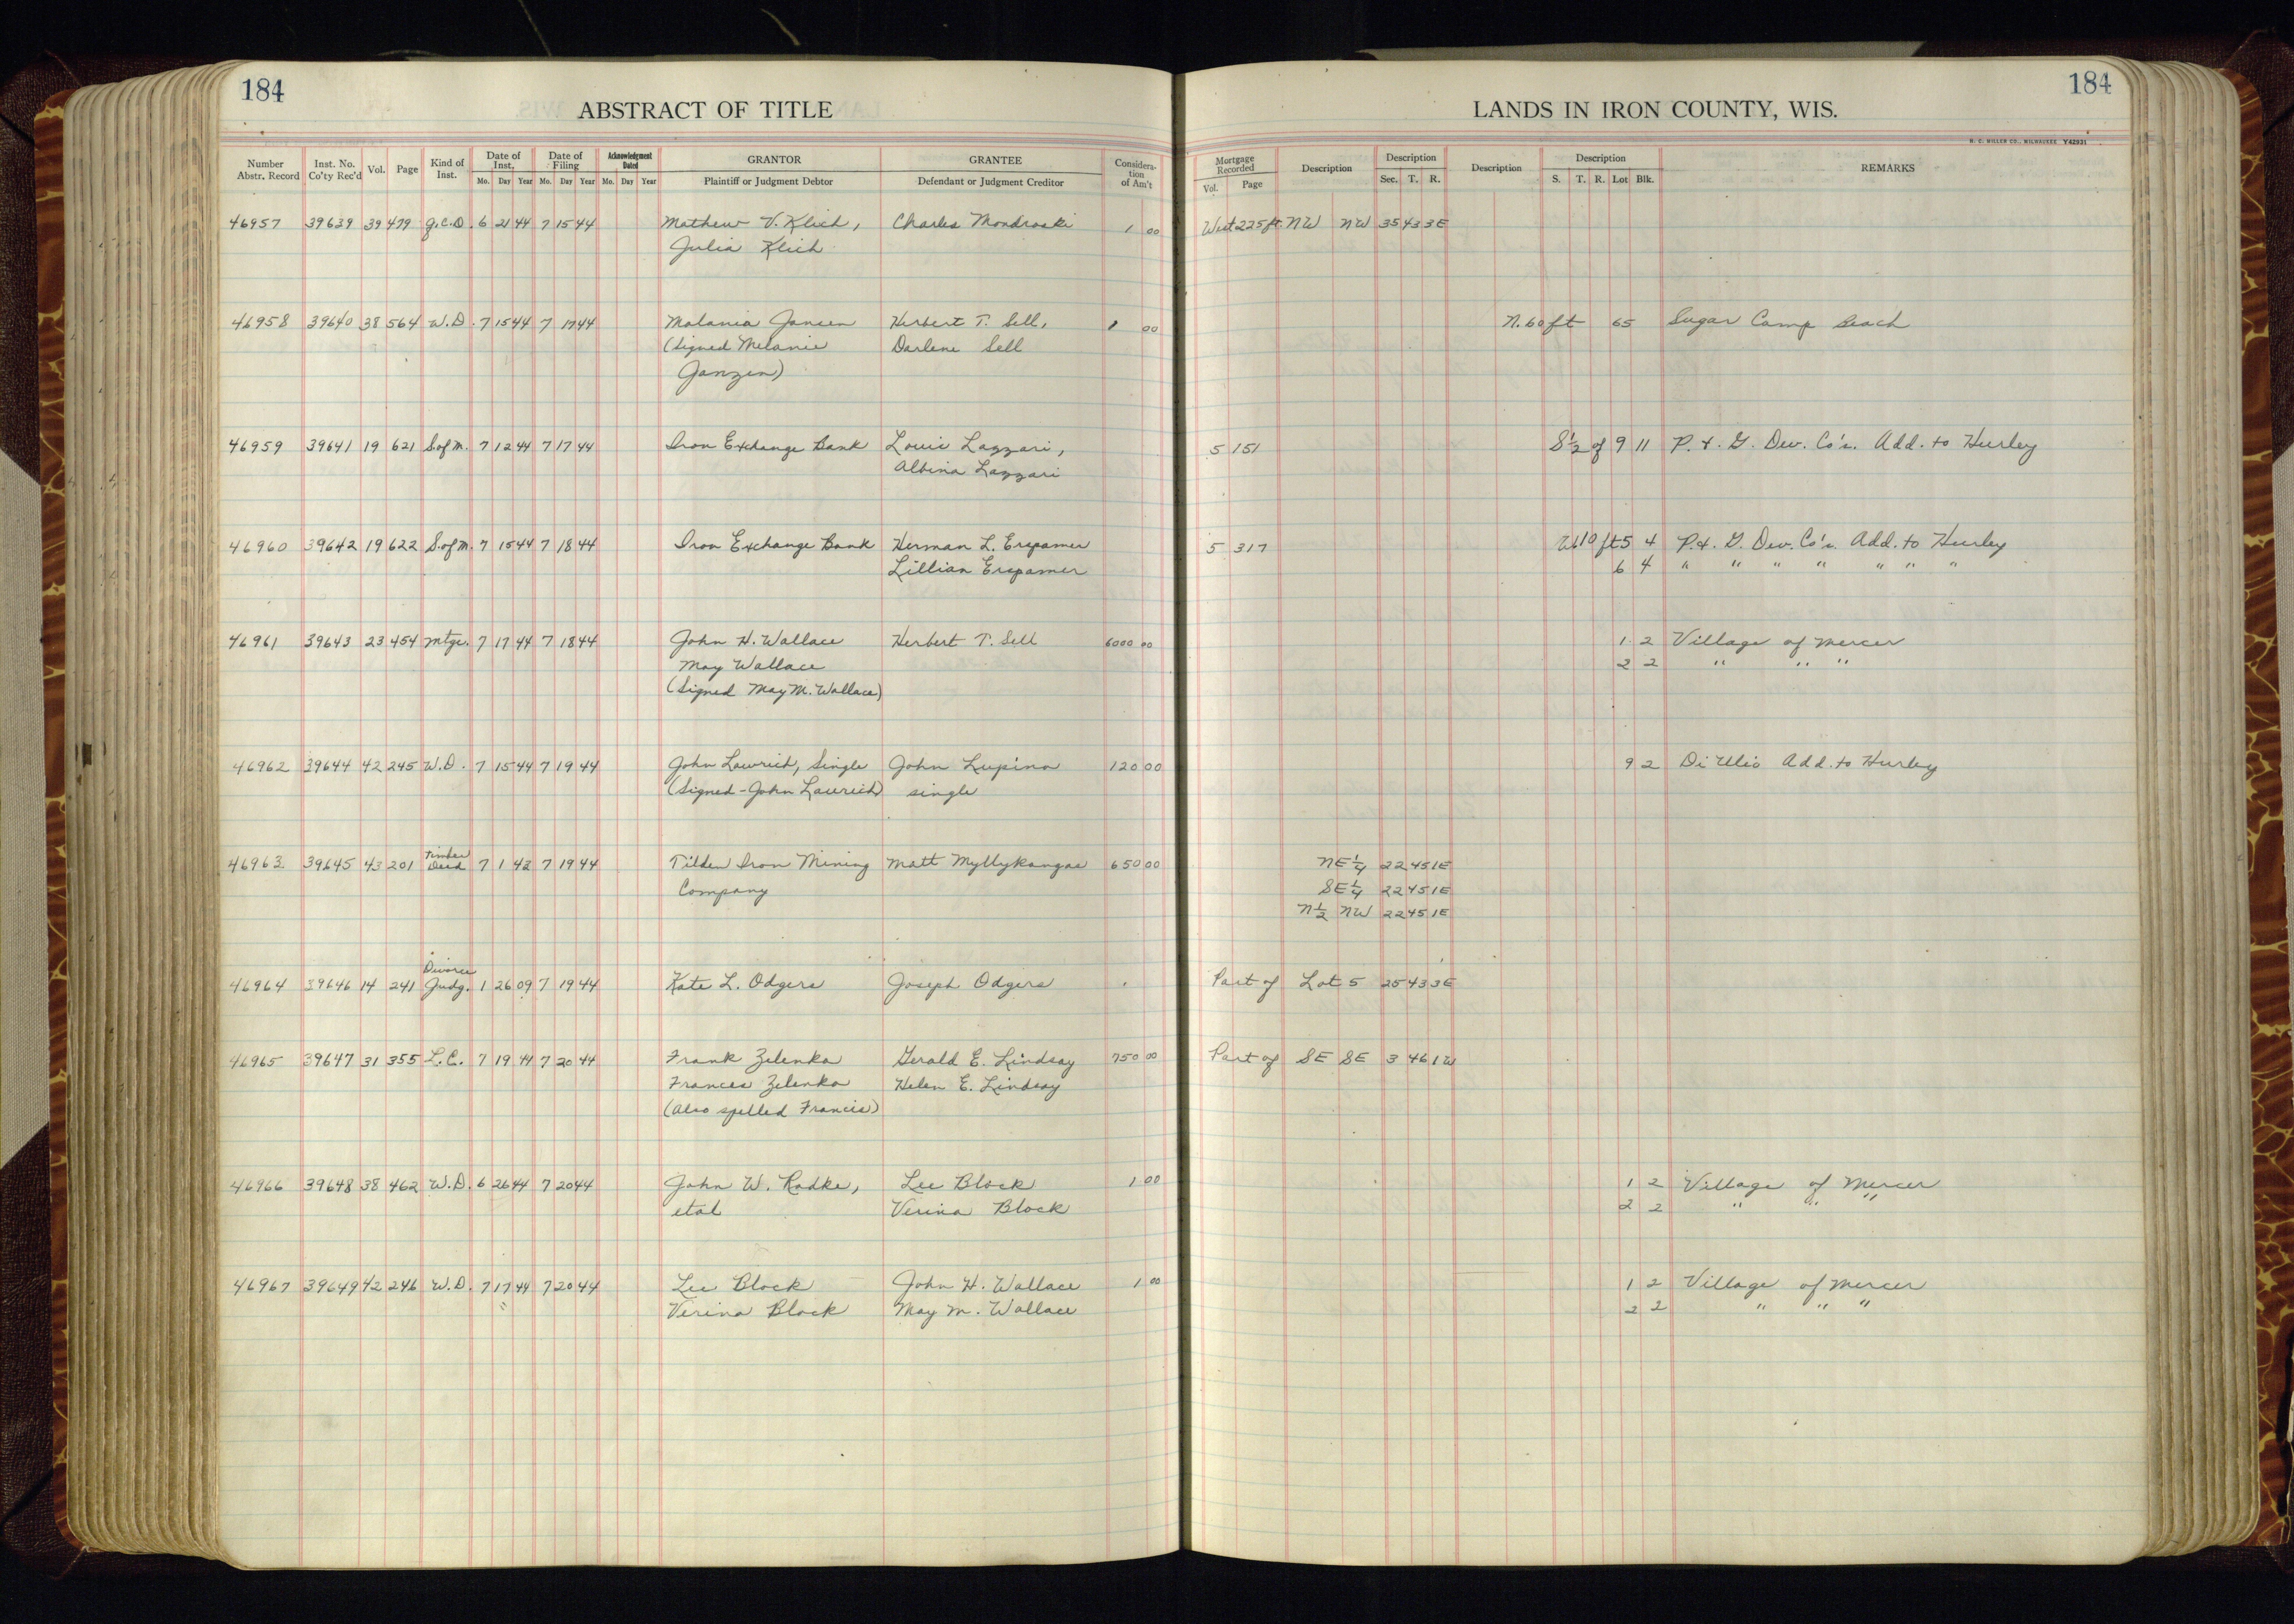 184
184
ABSTRACT OF TITLE
LANDS IN IRON COUNTY, WIS.
H. C. MILLER CO., MILWAUKEE Y42931
Number Abstr. Record Inst. No. Co'ty Rec'd Vol. Page Kind of Inst. Date of Inst. Mo. Day Year Date of Filing Mo. Day Year Acknowledgment Dated Mo. Day Year GRANTOR Plaintiff or Judgment Debtor GRANTEE Defendant or Judgment Creditor Considera-tion of Am't Mortgage Recorded Vol. Page Description Description Sec. T. R. Description Description S. T. R. Lot Blk. REMARKS
46957 39639 39 479 Q.C.D. 6 21 44 7 15 44 Mathew V. Klich, Charles Mondroski 1 00 West 225 ft. NW NW 35 43 3E
Julia Klich
46958 39640 38 564 W.D. 7 15 44 7 17 44 Malania Jansen Herbert T. Sell, 1 00 N. 60 ft 65 Sugar Camp Beach
(Signed Melanie Darlene Sell
Janzen)
46959 39641 19 621 S.ofM. 7 12 44 7 17 44 Iron Exchange Bank Louie Lazzari, 5 151 S½ of 9 11 P. & G. Dev. Co's. Add. to Hurley
Albina Lazzari
46960 39642 19 622 S.ofM. 7 15 44 7 18 44 Iron Exchange Bank Herman L. Erspamer 5 317 W10 ft 5 4 P. & G. Dev. Co's. Add. to Hurley
Lillian Erspamer 6 4 " " " " " " "
46961 39643 23 454 Mtge. 7 17 44 7 18 44 John H. Wallace Herbert T. Sell 6000 00 1 2 Village of Mercer
May Wallace 2 2 " " "
(Signed May M. Wallace)
46962 39644 42 245 W.D. 7 15 44 7 19 44 John Lawrich, Single John Lupino 120 00 9 2 Di Ulio Add. to Hurley
(Signed - John Laurich) single
46963 39645 43 201 Timber Deed 7 1 42 7 19 44 Tilden Iron Mining Matt Myllykangas 650 00 NE¼ 22 45 1E
Company SE¼ 22 45 1E
N½ NW 22 45 1E
46964 39646 14 241 Divorce Judg. 1 26 09 7 19 44 Kate L. Odgers Joseph Odgers Part of Lot 5 25 43 3E
46965 39647 31 355 L.C. 7 19 44 7 20 44 Frank Zelenka Gerald E. Lindsay 750 00 Part of SE SE 3 46 1W
Frances Zelenka Helen E. Lindsay
(Also spelled Francis)
46966 39648 38 462 W.D. 6 26 44 7 20 44 John W. Radke, Lee Block 1 00 1 2 Village of Mercer
etal Verina Block 2 2 " " "
46967 39649 42 246 W.D. 7 17 44 7 20 44 Lee Block John H. Wallace 1 00 1 2 Village of Mercer
Verina Block May M. Wallace 2 2 " " "